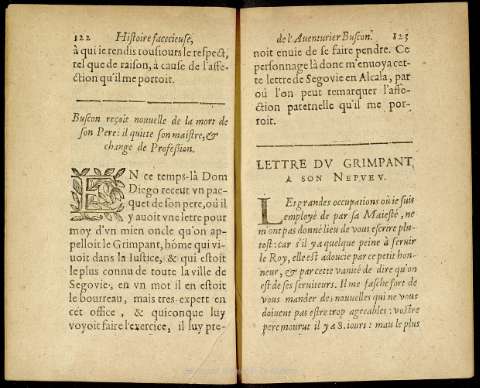 122 Histoire facecieuse,
à qui ie rendis tousiours le respect,
tel que de raison, à cause de l'affe-
ction qu'il me portoit.
Buscon reçoit nouuelle de la mort de
son Pere: il quitte son maistre, &
change de Profession.
EN ce temps-là Dom
Diego receut vn pac-
quet de son pere, où il
y auoit vne lettre pour
moy d'vn mien oncle qu'on ap-
pelloit le Grimpant, hõme qui vi-
uoit dans la Iustice, & qui estoit
le plus connu de toute la ville de
Segovie, en vn mot il en estoit
le bourreau, mais tres-expert en
cét office, & quiconque luy
voyoit faire l'exercice, il luy pre-
de l'Auenturier Buscon. 123
noit enuie de se faire pendre. Ce
personnage là donc m'enuoya cet-
te lettre de Segovie en Alcala, par
où l'on peut remarquer l'affe-
ction paternelle qu'il me por-
toit.
LETTRE DV GRIMPANT
A SON NEPVEV.
LEs grandes occupations où ie suis
employé de par sa Maiesté, ne
m'ont pas donné lieu de vous escrire plu-
tost: car s'il y a quelque peine à seruir
le Roy, elle est adoucie par ce petit hon-
neur, & par cette vanité de dire qu'on
est de ses seruiteurs. Il me fasche fort de
vous mander des nouuelles qui ne vous
doiuent pas estre trop agreables: vostre
pere mourut il y a 8. iours: mau le plus